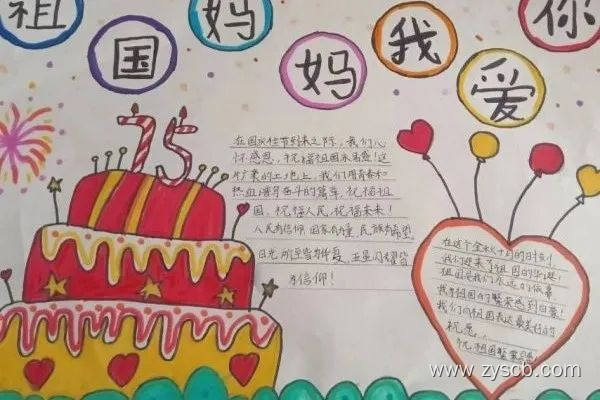 祖国妈妈我爱你
75
在国庆佳节到来之际，我们心
怀感恩，祝福祖国永昌盛！这
片广袤的土地上，我们用青春和
热血谱写奋斗的篇章，祝福祖
国，祝福人民，祝福未来！
人民有信仰 国家有力量，民族有希望
目光所至皆为华夏，五星闪耀皆
为信仰！
在这个金秋十月的时刻
我们迎来了祖国的华诞！
祖国是我们永远的
我为祖国的繁荣感到自豪！
我们向祖国表达最美好的
祝愿。
祝祖国繁荣昌盛
www.zyscb.com